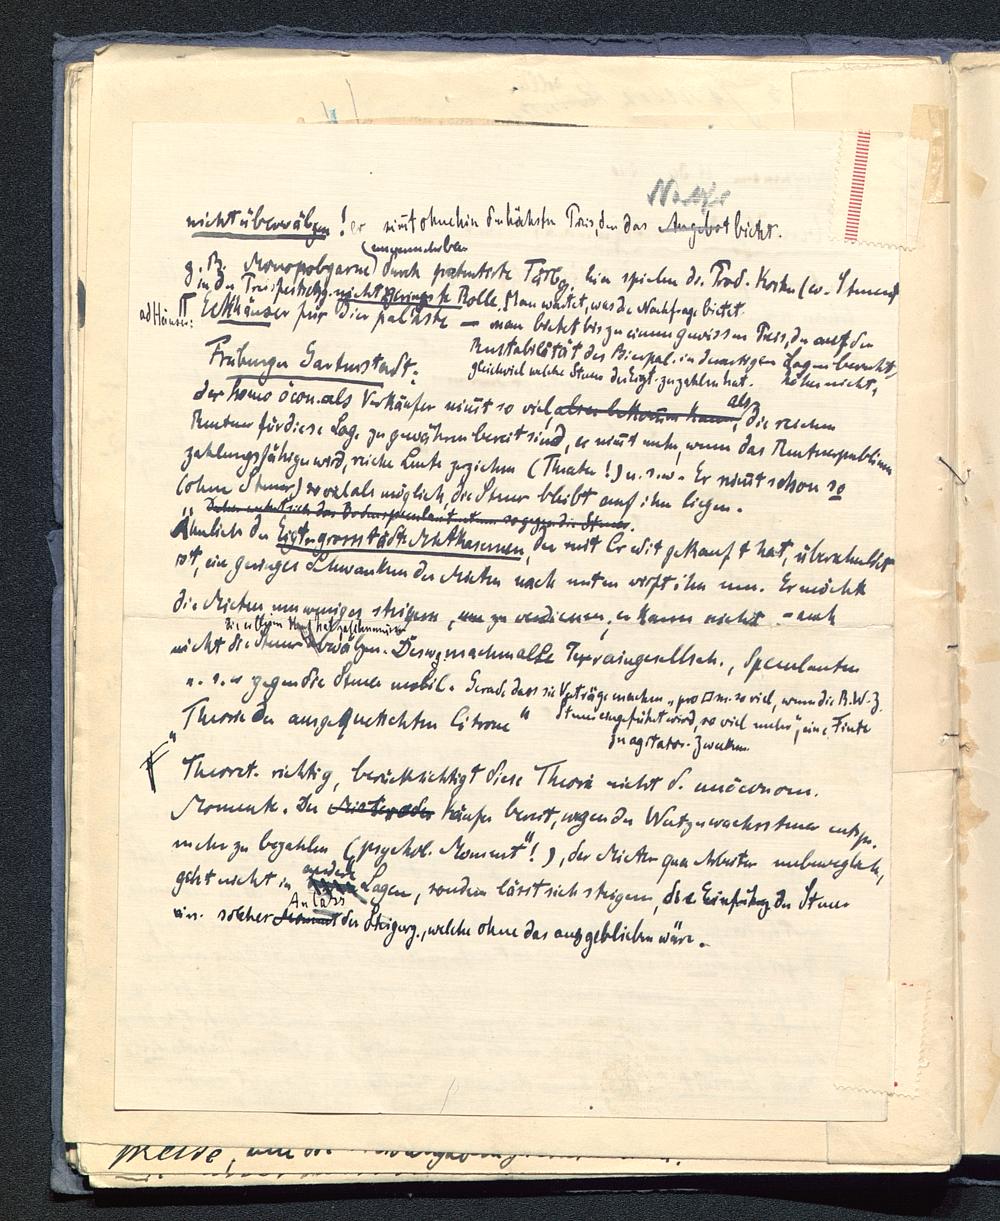 nicht überwälzen! er nimt ohnehin d. höchsten Preis, den das Angebot bietet.
(unvermehrbar
z. B. Monopolgarne) durch patentierte Färbg, hier spielen die Prod. Kosten (ev. Steuern
in der Preisfestsetzg. nicht geringste Rolle. Man wartet, was die Nachfrage bietet.
ad Häuser: II Eckhäuser für Bierpaläste — man bietet bis zu einem gewissen Preis, der auf der
Rentabilität des Bierpal. in derartigen Lagen beruht,
Freiburger Gartenstadt.
gleichviel welche Steuer der Eigt. zu zahlen hat. höher nicht,
der homo öcon. als Verkäufer nimt so viel als er bekommen kann, als die reichen
Rentner für diese Lage zu gewähren bereit sind, er nimt mehr, wenn das Rentnerpublikum
zahlungsfähiger wird, reiche Leute zuziehen (Theater!) u. s. w. Er nimt schon so
(ohne Steuer) so viel als möglich, die Steuer bleibt auf ihm liegen.
Ähnlich der Eigt. grosstädt. Mietkasernen, der mit Credit gekauft hat, überschuldet
ist, ein geringes Schwanken der Mieten nach unten wirft ihn um. Er möchte
die Mieten um weniges steigern, um zu verdienen, er kann nicht – auch
nicht die Steuer abwälzen. Desweg. machen alle Terraingesellsch., Speculanten
u. s. w gegen die Steuer mobil. Gerade, dass sie Verträge machen „pro □m. so viel, wenn die R. W. Z.
Steuer eingeführt wird, so viel mehr", eine Finte
Theorie der ausgequetschten Citrone"
zu agitator. Zwecken.
Theoret. richtig, berücksichtigt diese Theorie nicht d. unöconom.
Momente. Der Mieter oder Käufer bereit, wegen der Wertzuwachssteuer entspr.
mehr zu bezahlen (psychol. Moment"!), der Mieter qua Arbeiter unbeweglich,
geht nicht in andere Lagen, sondern lässt sich steigern, die Einführg der Steuer
Anlass
ein solcher Moment der Steigerg., welche ohne das ausgeblieben wäre.